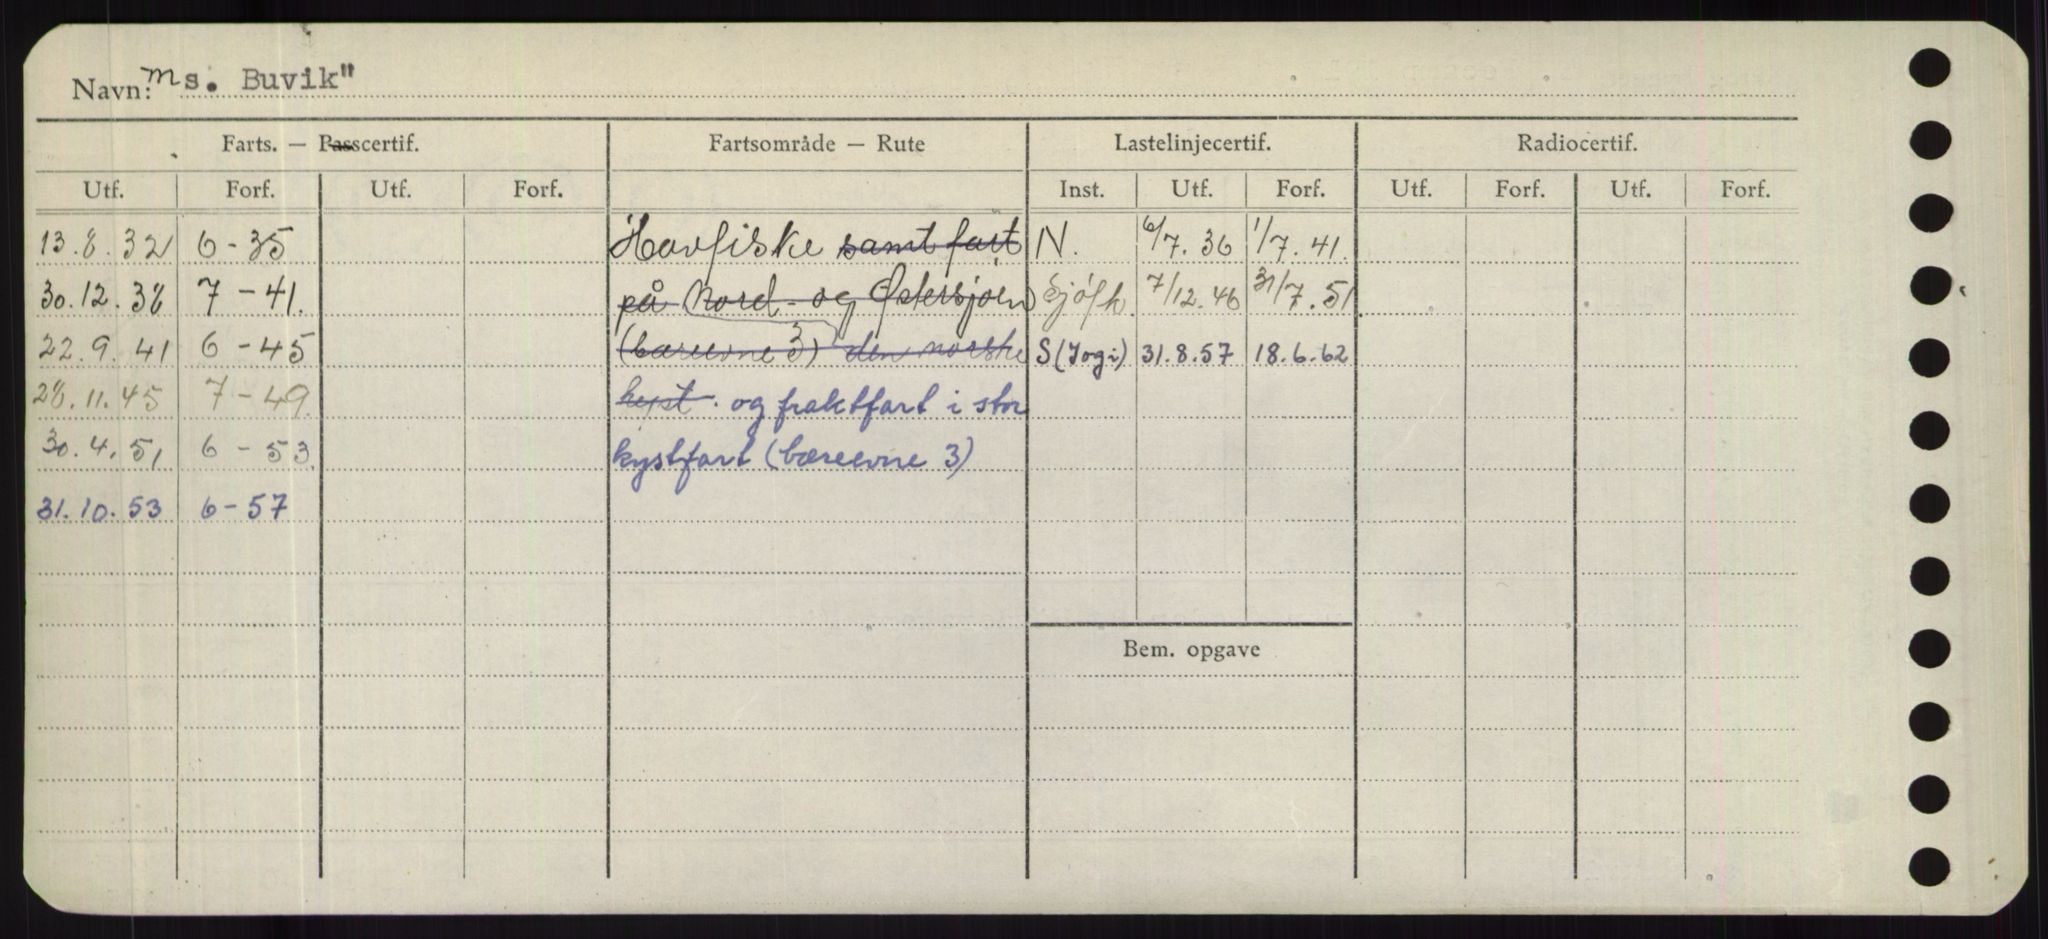 Navn: Ms. Buvik"
Farts. — Passcertif. Fartsområde — Rute Lastelinjecertif. Radiocertif.
Utf. Forf. Utf. Forf. Inst. Utf. Forf. Utf. Forf. Utf. Forf.
13.8.32 6-35 Havfiske samt fart N. 6/7.36 1/7.41.
30.12.38 7-41. på Nord- og Østersjøen Sjófk. 7/12.46 31/7.51
22.9.41 6-45 (bæreevne 3) den norske S (Togi) 31.8.57 18.6.62
28.11.45 7-49. kyst. og fraktfart i stor
30.4.51 6-53. kystfart (bæreevne 3)
31.10.53 6-57
Bem. opgave